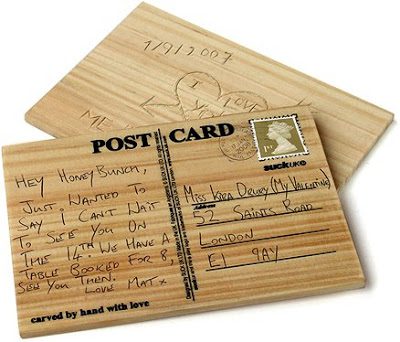 1/9/2007
I
LOVE
YOU
ME
POST CARD
1st
suckUK
HEY HONEYBUNCH,
JUST WANTED TO
SAY I CAN'T WAIT
TO SEE YOU ON
THE 14TH. WE HAVE A
TABLE BOOKED FOR 8,
SEE YOU THEN.
LOVE MAT X
carved by hand with love
MISS KIRA DRURY (MY VALENTINE)
Address
52 SAINTS ROAD
LONDON
E1 9AY